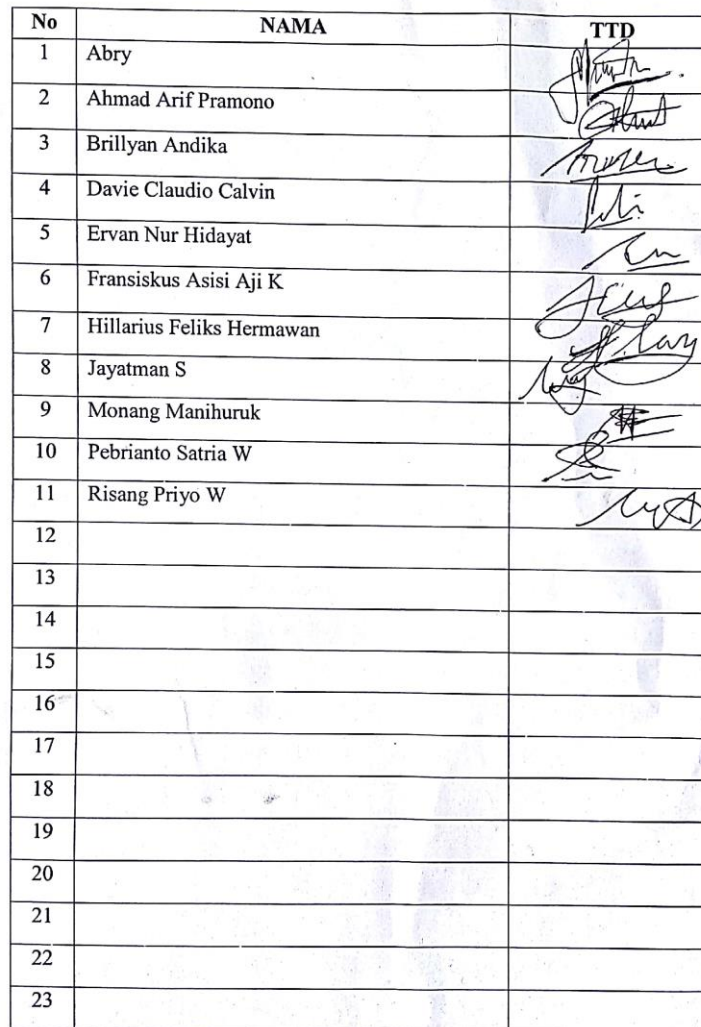 No NAMA TTD
1 Abry
2 Ahmad Arif Pramono
3 Brillyan Andika
4 Davie Claudio Calvin
5 Ervan Nur Hidayat
6 Fransiskus Asisi Aji K
7 Hillarius Feliks Hermawan
8 Jayatman S
9 Monang Manihuruk
10 Pebrianto Satria W
11 Risang Priyo W
12
13
14
15
16
17
18
19
20
21
22
23